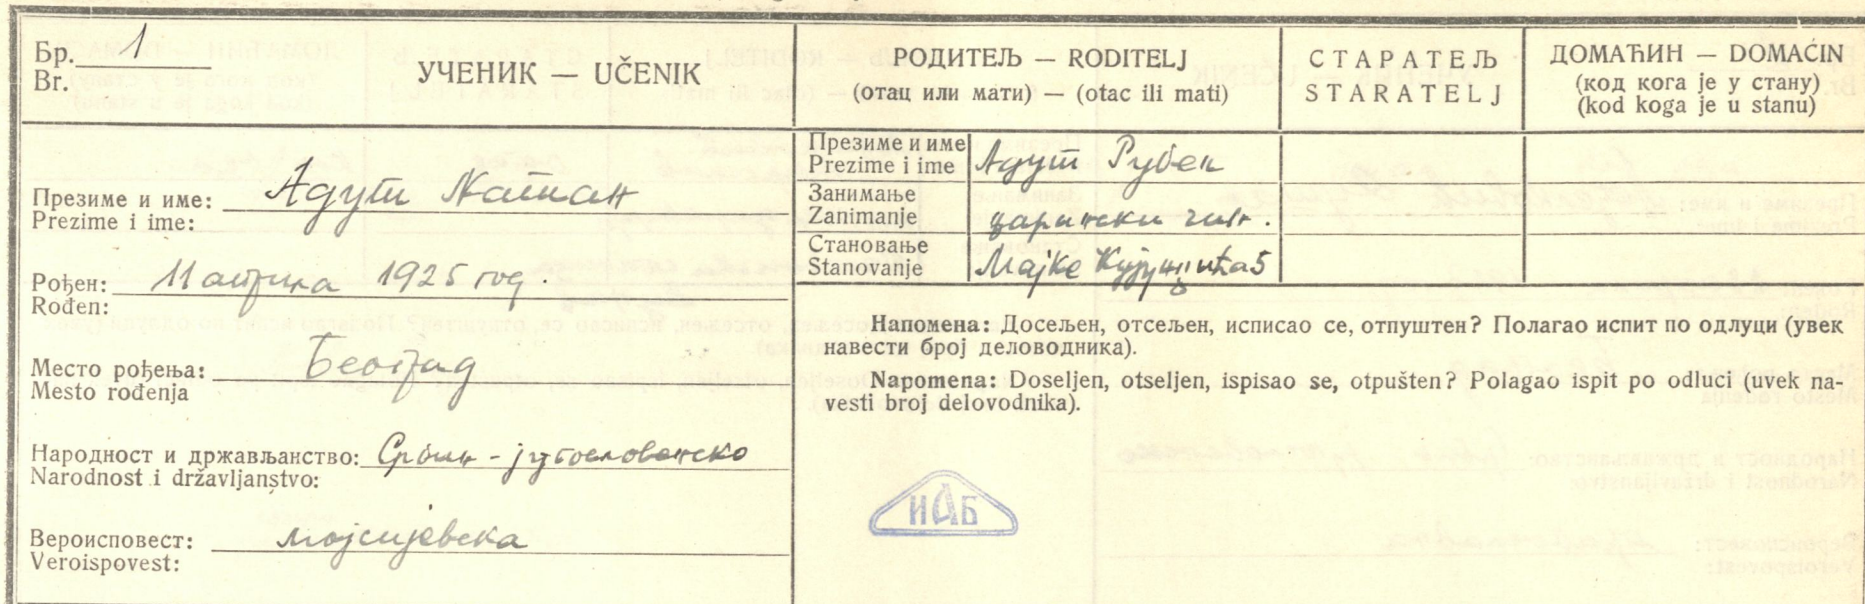 Бр. 1
Br.
УЧЕНИК — UČENIK
РОДИТЕЉ — RODITELJ
(отац или мати) — (otac ili mati)
СТАРАТЕЉ
STARATELJ
ДОМАЋИН — DOMAĆIN
(код кога је у стану)
(kod koga je u stanu)
Презиме и име: Адут Натан
Prezime i ime:
Рођен: 11 априла 1925 год.
Rođen:
Место рођења: Београд
Mesto rođenja
Народност и држављанство: Србин - југословенско
Narodnost i državljanstvo:
Вероисповест: мојсијевска
Veroispovest:
Презиме и име
Prezime i ime Адут Рубен
Занимање
Zanimanje царински чин.
Становање
Stanovanje Мајке Кујунџића 5
Напомена: Досељен, отсељен, исписао се, отпуштен? Полагао испит по одлуци (увек
навести број деловодника).
Napomena: Doseljen, otseljen, ispisao se, otpušten? Polagao ispit po odluci (uvek na-
vesti broj delovodnika).
ИАБ